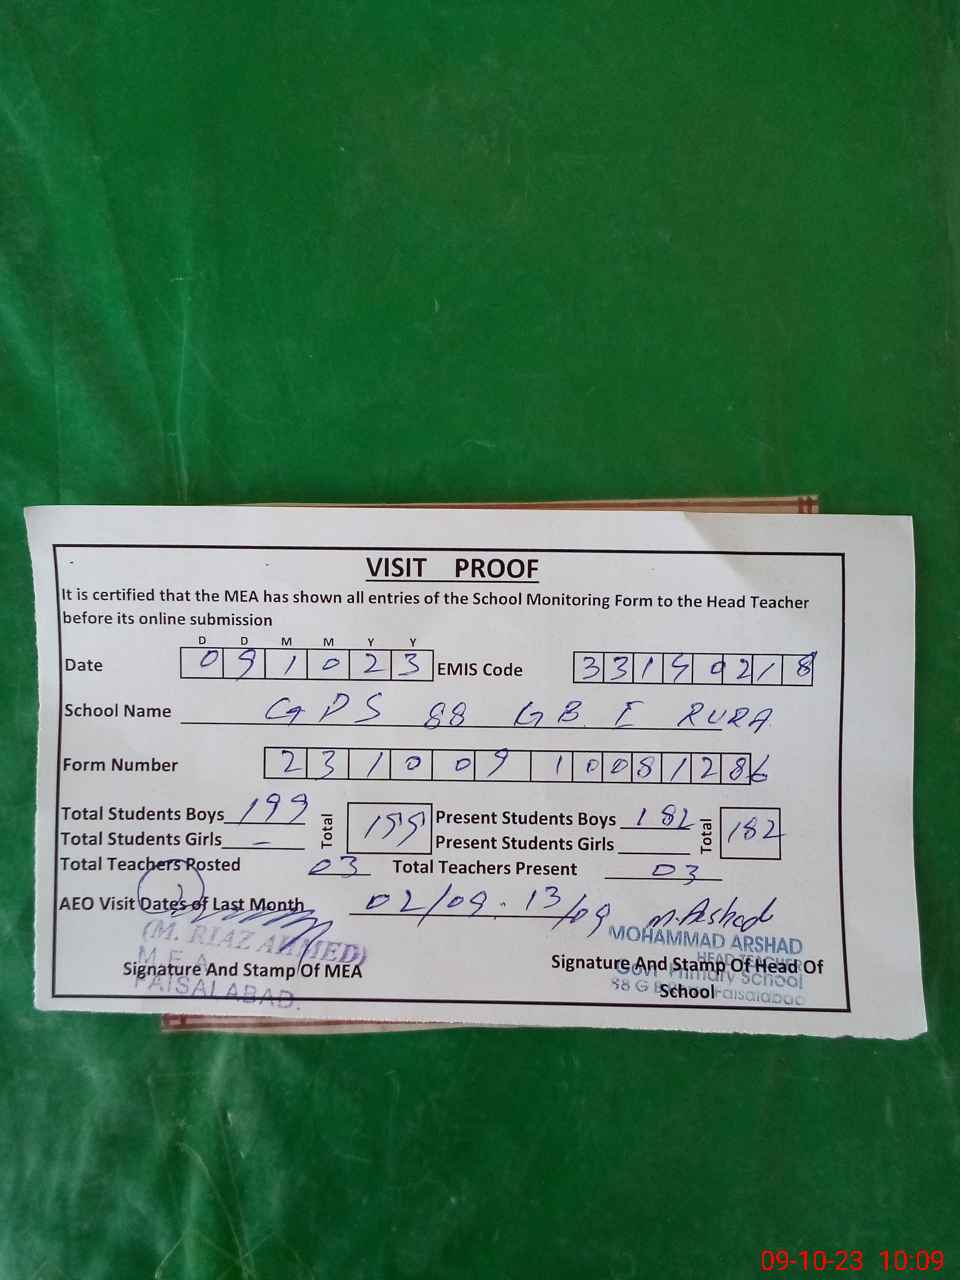 VISIT PROOF
It is certified that the MEA has shown all entries of the School Monitoring Form to the Head Teacher
before its online submission
D D M M Y Y
Date 0 9 1 0 2 3 EMIS Code 3 3 1 9 0 2 1 8
School Name GPS 88 GB I RURA
Form Number 2 3 1 0 0 9 1 0 0 8 1 2 8 6
Total Students Boys 199 Total 199 Present Students Boys 182 Total 182
Total Students Girls - Present Students Girls
Total Teachers Posted 03 Total Teachers Present 03
AEO Visit Dates of Last Month 02/09. 13/09 M.Arshad
(M. RIAZ AHMED) MOHAMMAD ARSHAD
M.E.A HEAD TEACHER
Signature And Stamp Of MEA Signature And Stamp Of Head Of
FAISALABAD. Govt Primary School
School
88 G B Faisalabad
09-10-23 10:09